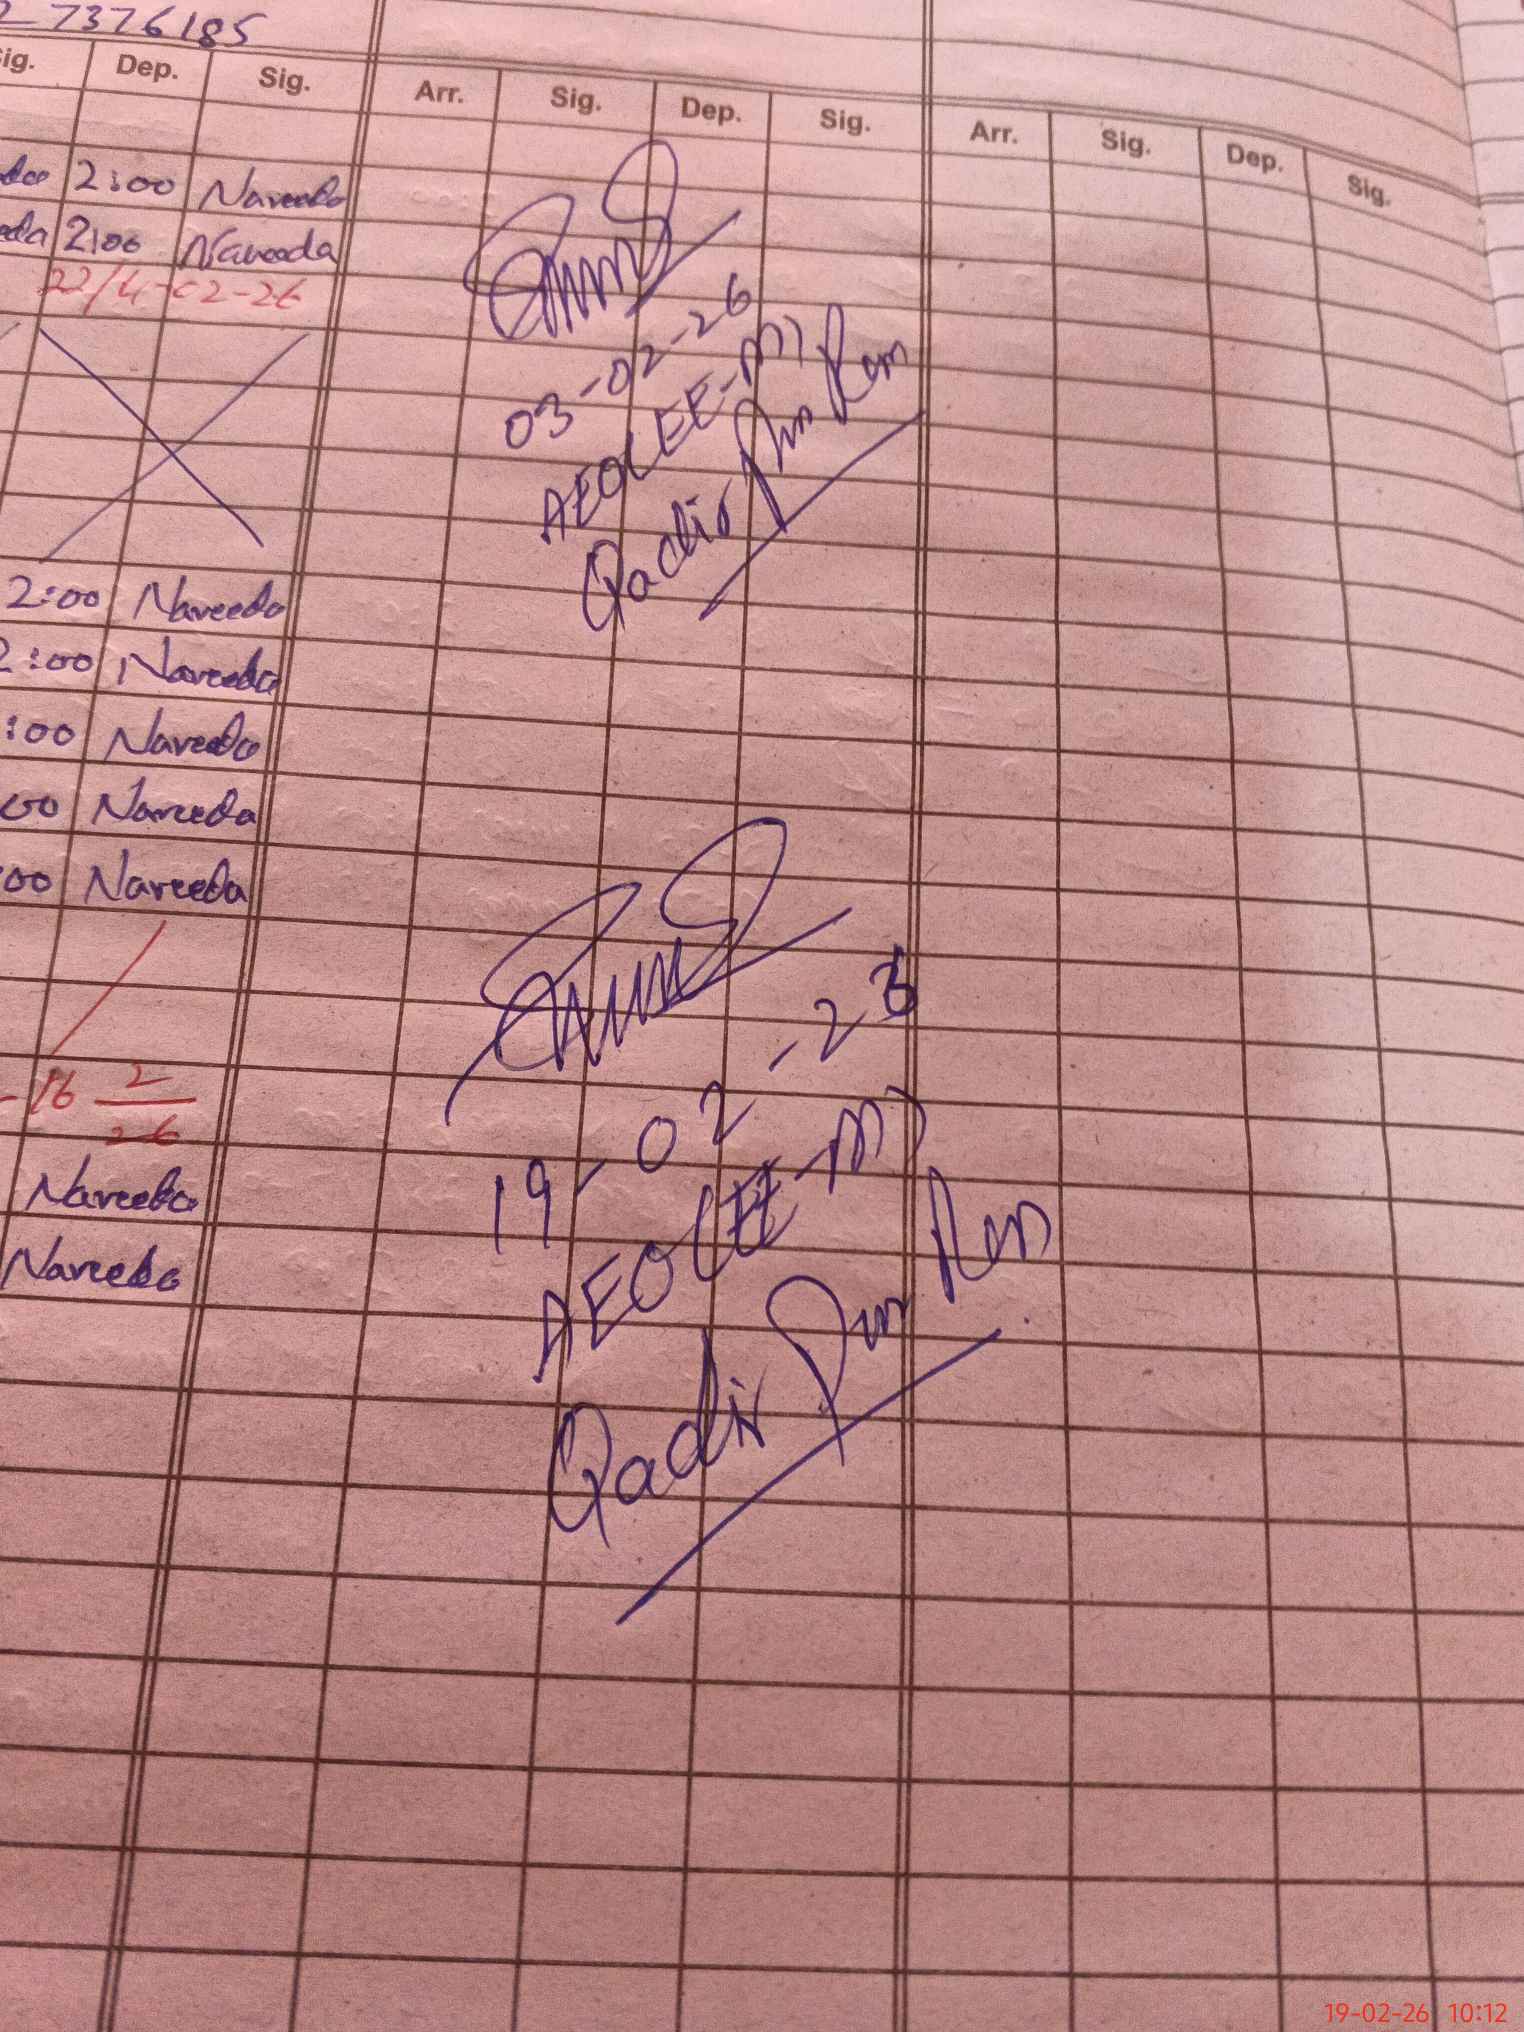 7376185
ig. Dep. Sig. Arr. Sig. Dep. Sig. Arr. Sig. Dep. Sig.
2:00 Naveeda
eda 2:00 Naveeda
22/4-02-26
03-02-26
AEO(EE-M)
Qadir Pur Ran
2:00 Naveeda
2:00 Naveeda
:00 Naveeda
00 Naveeda
:00 Naveeda
-16 2
26
19-02-26
AEO(EE-M)
Naveeda
Naveeda
Qadir Pur Ran
19-02-26 10:12